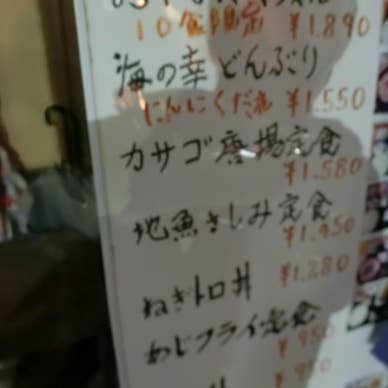 10食限定 ¥1.890
海の幸どんぶり
にんにくだれ ¥1.550
カサゴ唐揚定食
¥1.580
地魚さしみ定食
¥1.450
ねぎトロ丼 ¥1.280
あじフライ定食
¥950